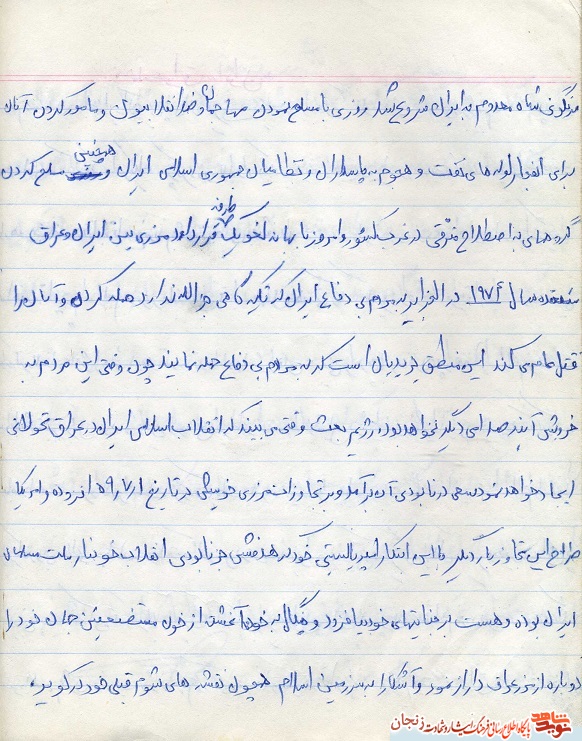 سرنگونی شاه معدوم به ایران شروع شد روزی با مسلح نمودن مهاجمان و ضدانقلابیون و مامور کردن آنان
برای انفجار لوله های نفت و هجوم به پاسداران و نظامیان جمهوری اسلامی ایران و همچنین مسلح کردن
گروههای به اصطلاح مترقی در غرب کشور و امروز با بهانه لغو یک طرفه قرارداد مرزی بین ایران و عراق
منعقده سال ۱۹۷۴ در الجزایر به مردم بی دفاع ایران که تکیه گاهی جز الله ندارند حمله کردن و آنان را
قتل عام می کند این منطق یزیدیان است که به مردم بی دفاع حمله نمایند چون وقتی این مردم به
خروش آیند صدامی دیگر نخواهد بود رژیم بعث وقتی می بیند که انقلاب اسلامی ایران در عراق تحولاتی
ایجاد خواهد نمود سعی در نابودی آن برآمد و بر تجاوزات مرزی خویش در تاریخ ۵۹/۷/۱ افزوده و امریکا
طراح این تجاوز بار دیگر با این ابتکار امپریالیستی خود که هدفش جز نابودی انقلاب خونبار ملت مسلمان
ایران بوده و هست بر جنایتهای خود بیافزود و چنگال به خون آغشته از خون مستضعفین جهان خود را
دوباره از مرز عراق دراز نمود و آشکارا به سرزمین اسلام همچون نقشه های شوم قبلی خود که کوبید.
نوید شاهد
پایگاه اطلاع رسانی فرهنگ ایثار و شهادت زنجان